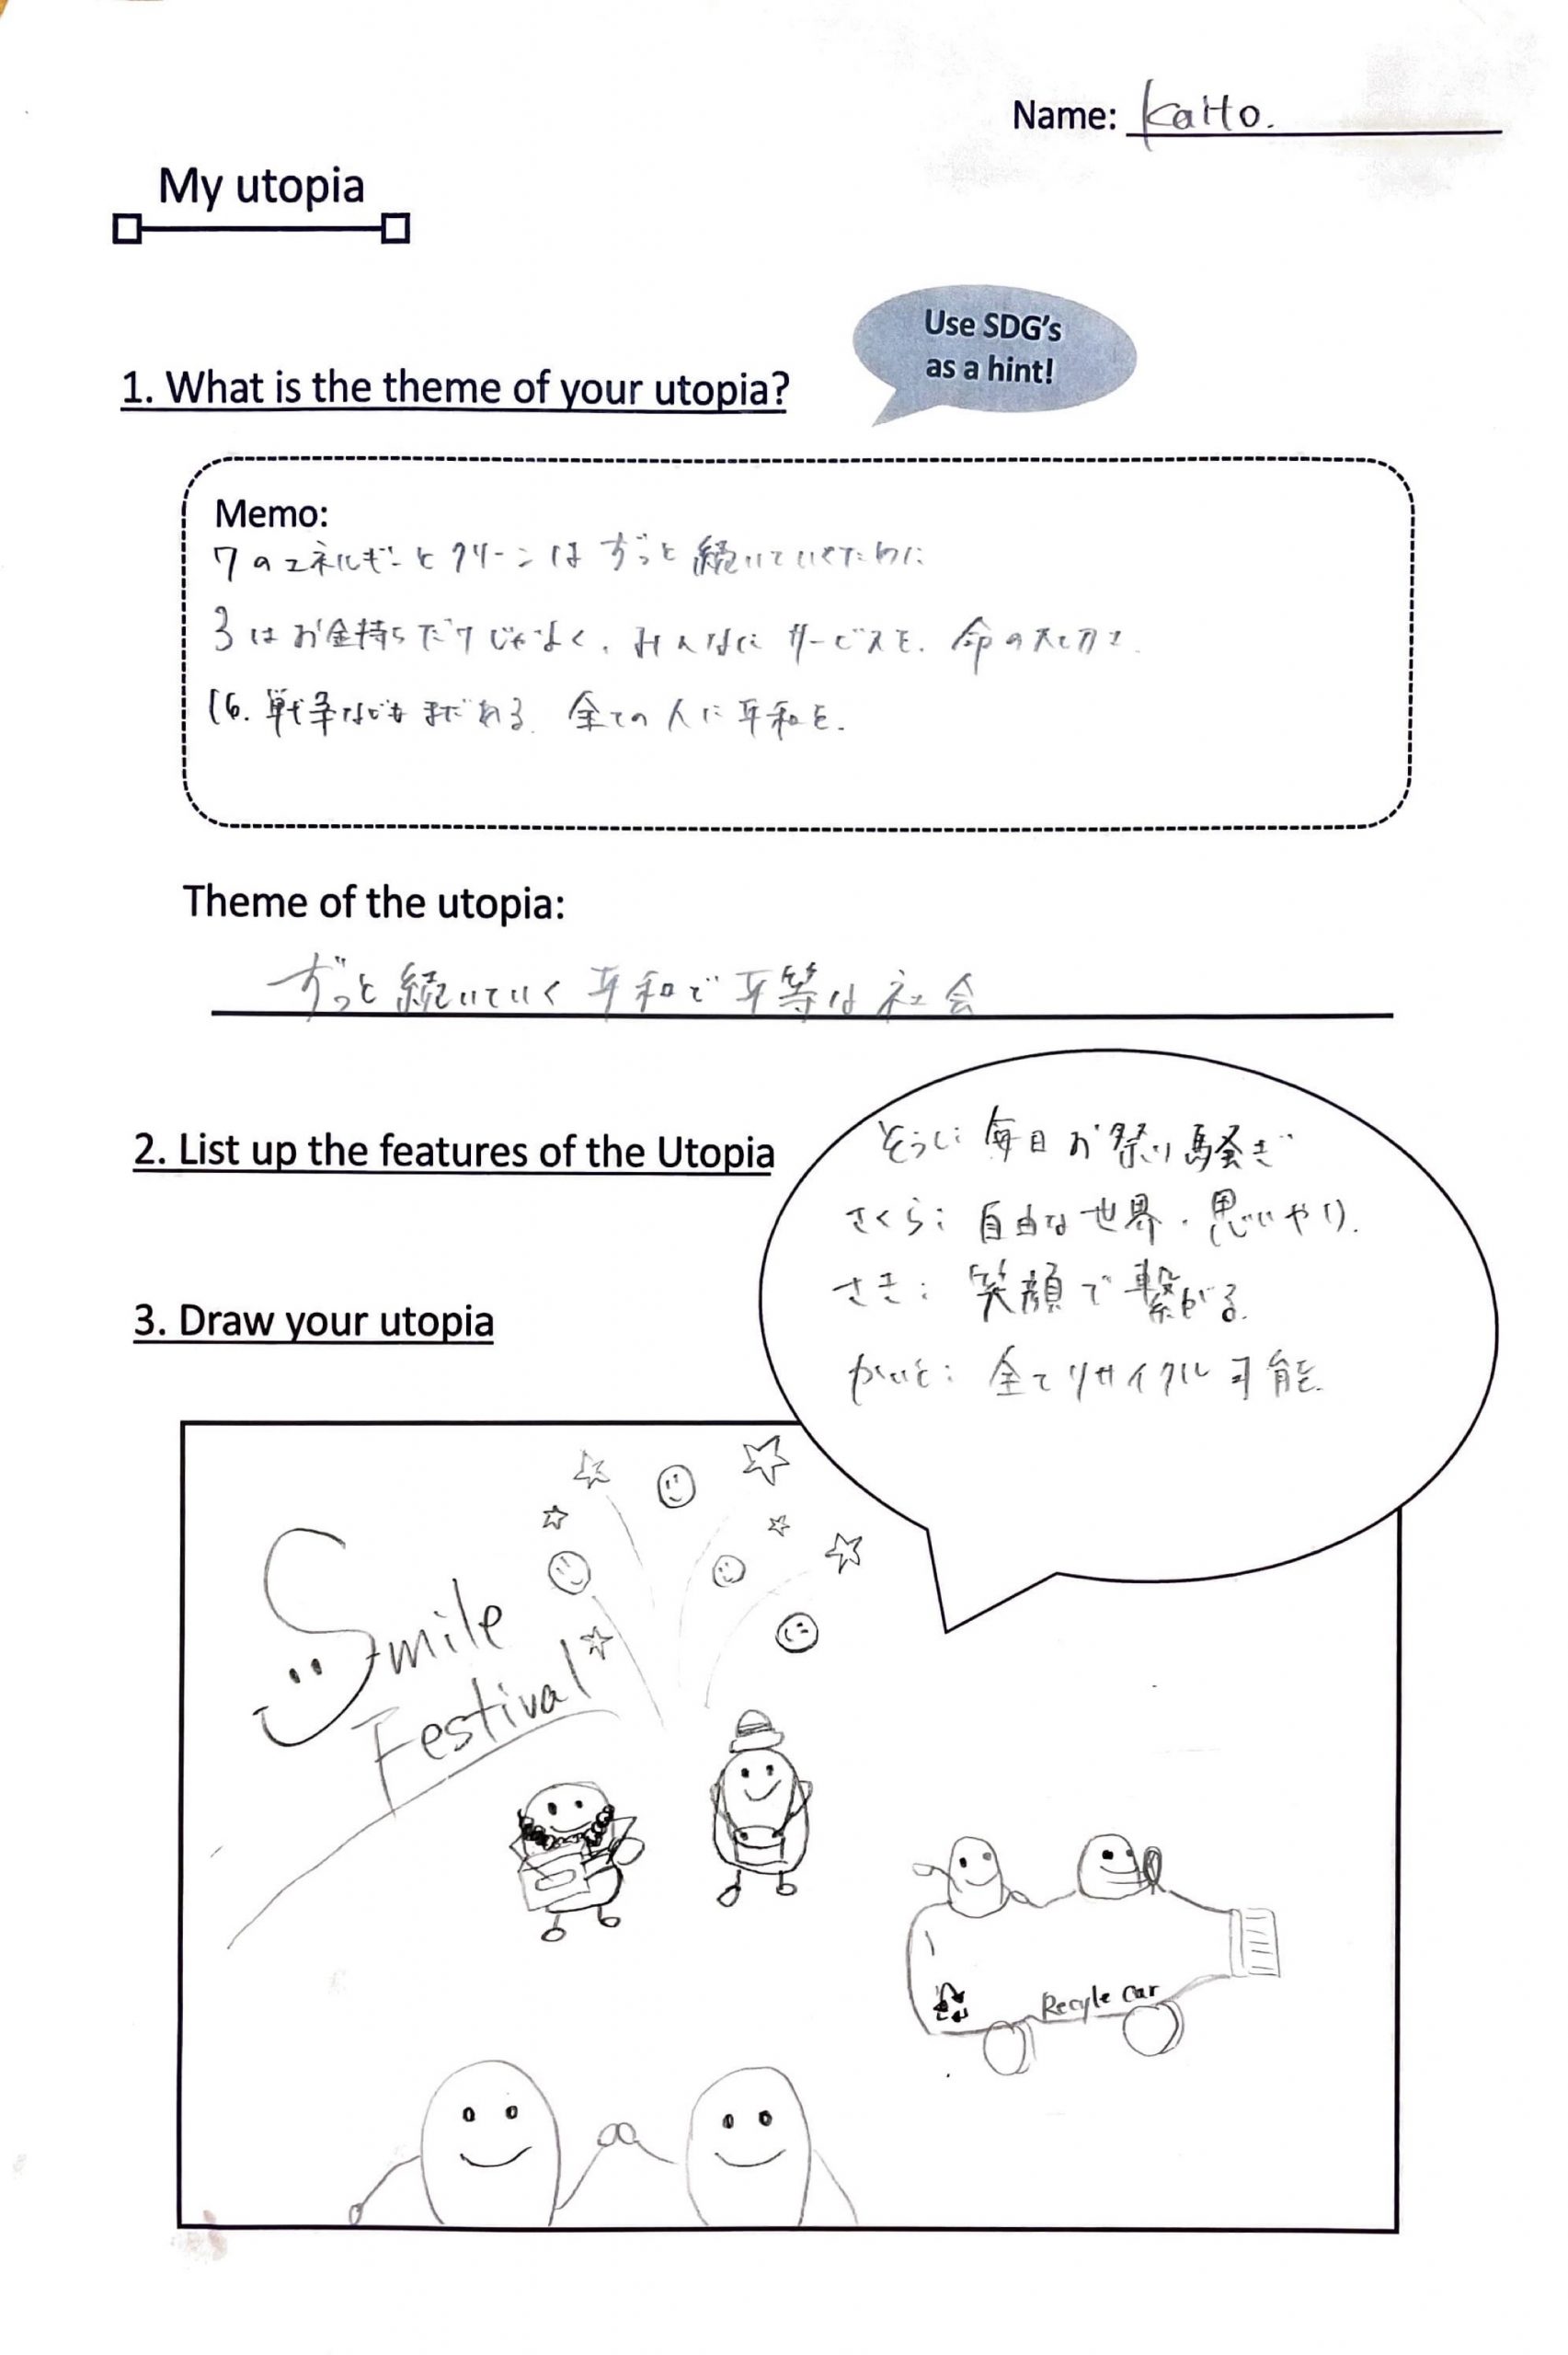 Name: Kaito.
My utopia
Use SDG's
as a hint!
1. What is the theme of your utopia?
Memo:
7のエネルギーとクリーンはずっと続いていくために
3はお金持ちだけじゃなく、みんなにサービスを. 命の大切さ.
16. 戦争などもまだある. 全ての人に平和を.
Theme of the utopia:
ずっと続いていく平和で平等な社会
2. List up the features of the Utopia
そうし: 毎日お祭り騒ぎ
さくら: 自由な世界・思いやり.
さき: 笑顔で繋がる.
かいと: 全てリサイクル可能.
3. Draw your utopia
Smile
Festival
Recyle car